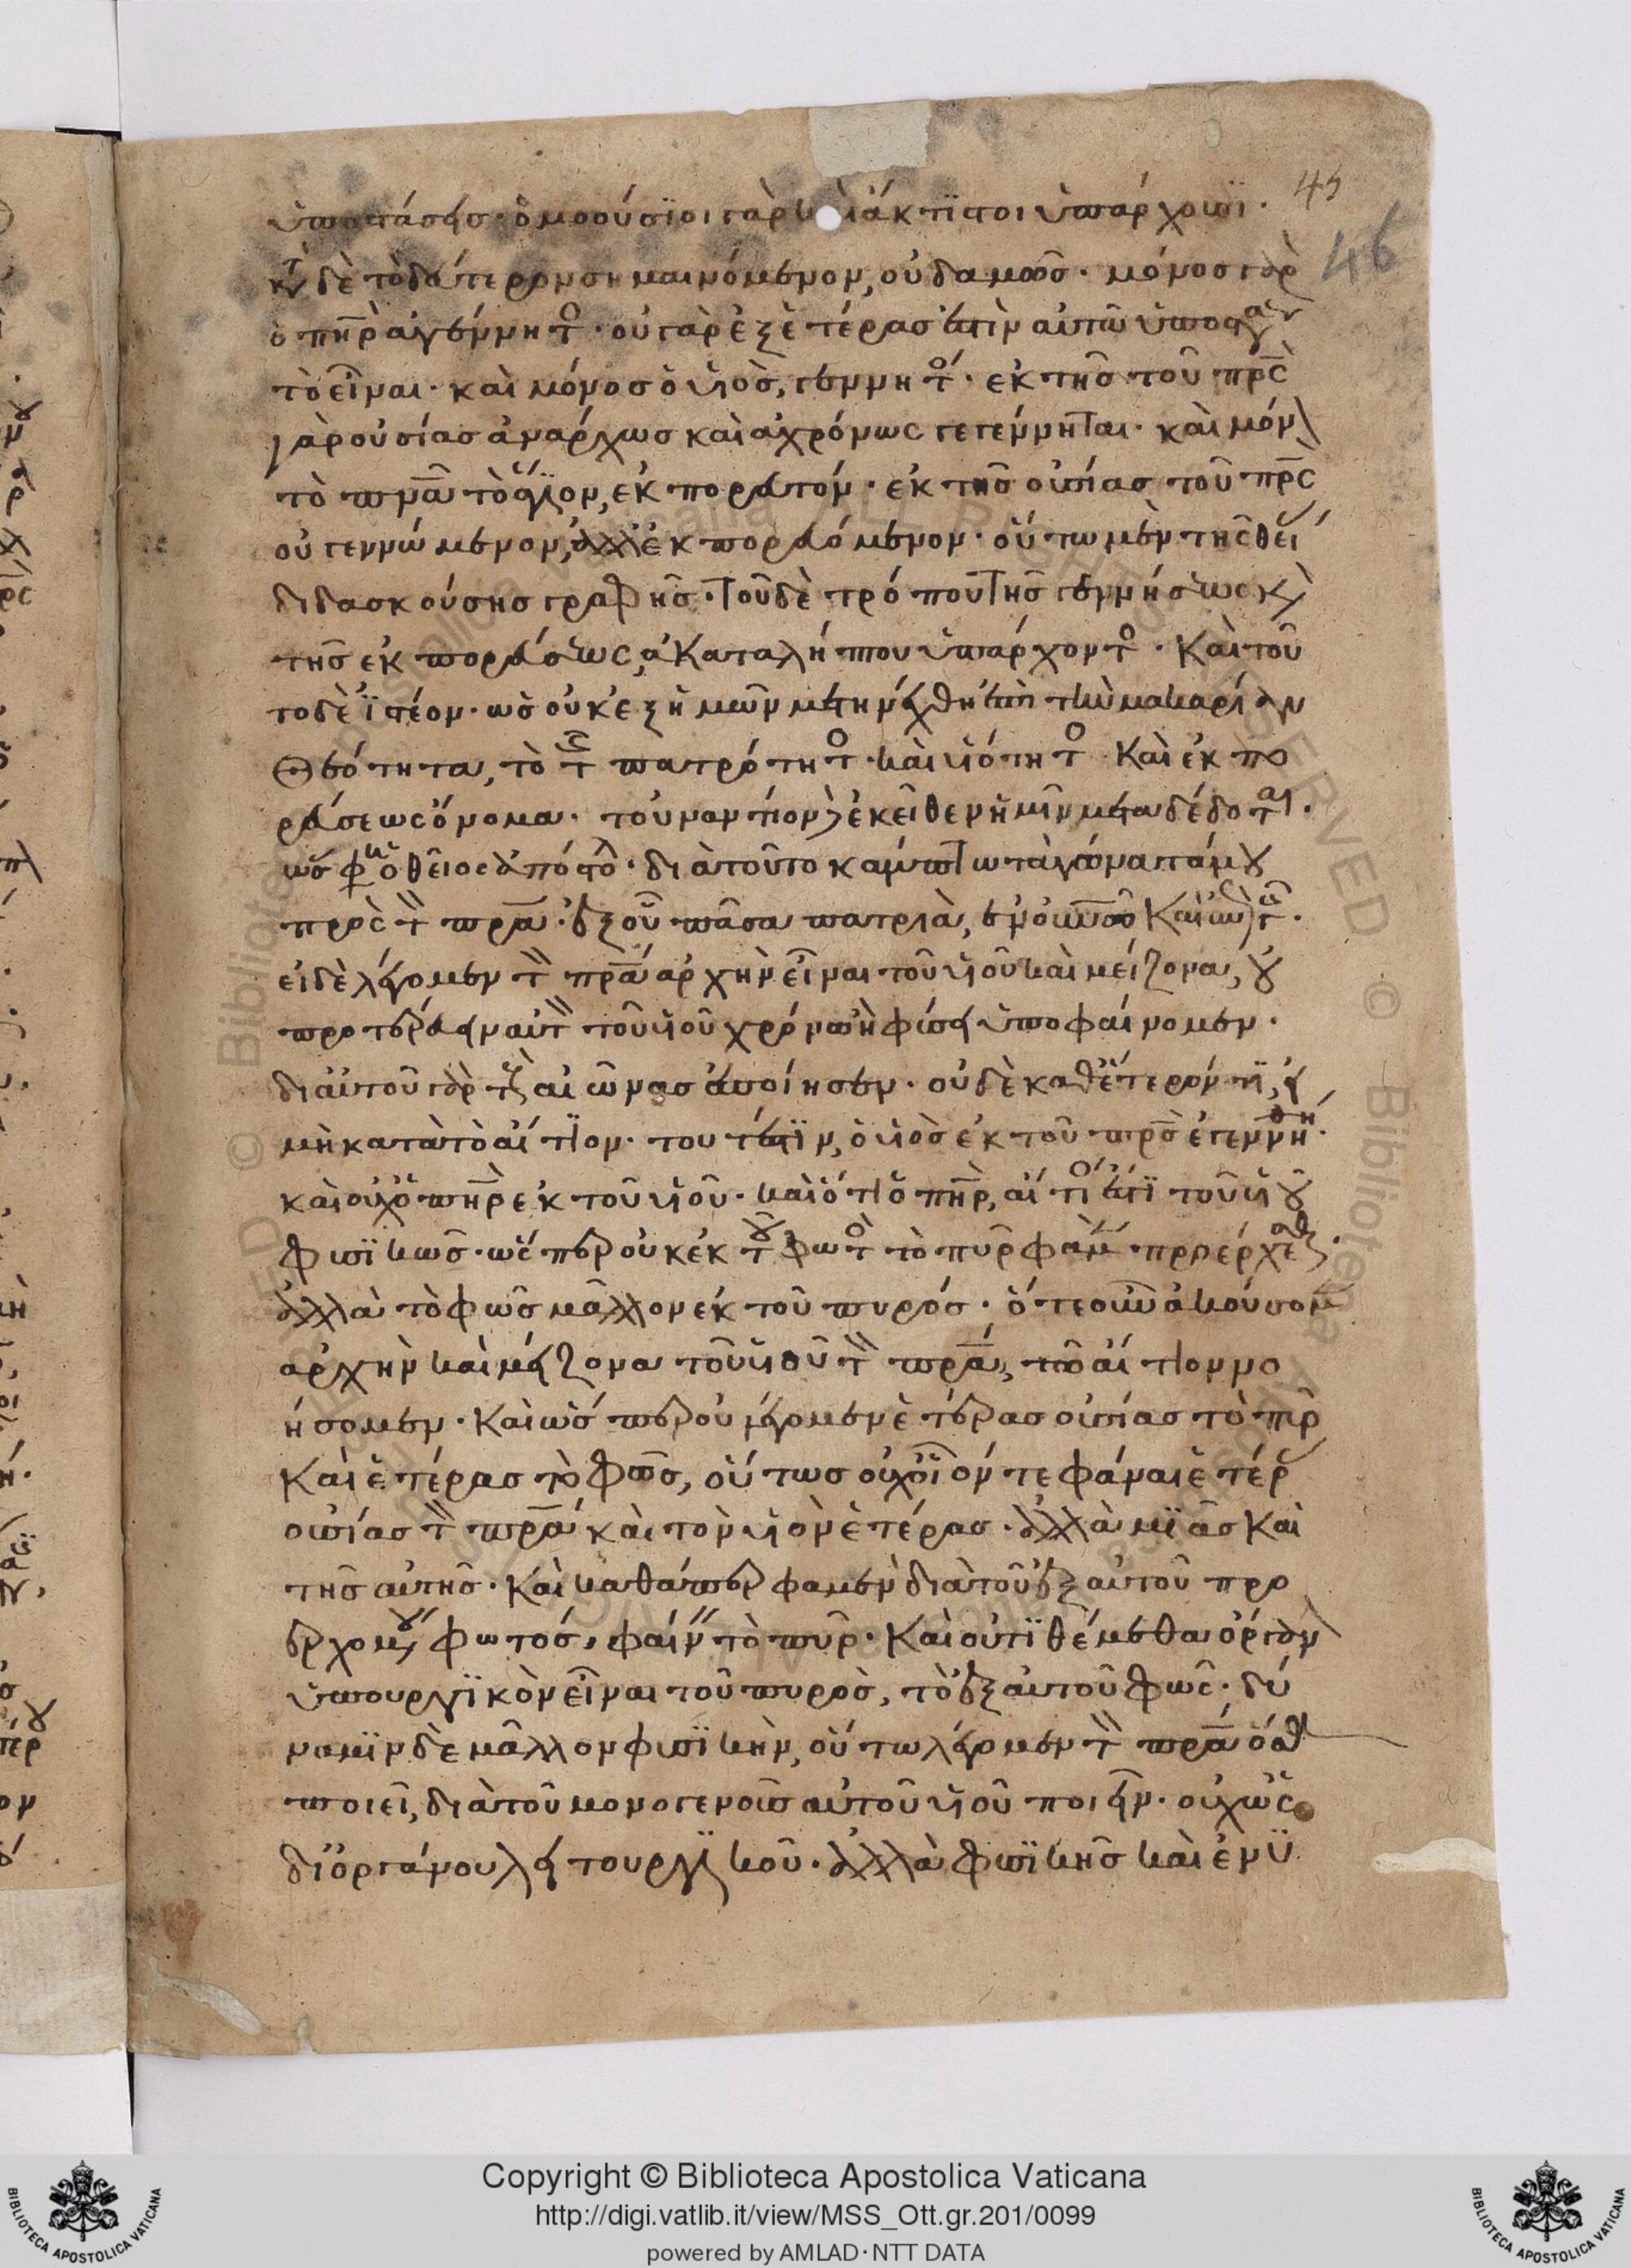 45
46
ὑποστάσεις· ὁμοούσϊοι γὰρ καὶ ἄκτϊστοι ὑπάρχουσϊ·
κτ δὲ τὸ δεύτερον σημαινόμενον, οὐδαμῶς· μόνος γὰρ
ὁ πηρ ἀγέννητο· οὐ γὰρ ἐξ ἑτέρας ἐστὶν αὐτῶ ὑποστασ
τὸ εἶναι· καὶ μόνος ὁ υἱὸς, γεννητό· ἐκ τῆς τοῦ πρς
γὰρ οὐσίας ἀνάρχως καὶ ἀχρόνως γεγέννηται· καὶ μόν
τὸ πνα τὸ ἅγϊον, ἐκπορευτόν· ἐκ τῆς οὐσίας τοῦ πρς
οὐ γεννώμενον, ἀλλ' ἐκπορευόμενον· οὕτω μὲν τῆς θεί
διδασκούσης γραφῆς· τοῦ δὲ τρόπου τῆς γεννήσεως κ
τῆς ἐκπορεύσεως, ἀκαταλήπτου ὑπάρχοντο· καὶ τοῦ
το δὲ ἰστέον· ὡς οὐκ ἐξ ἡμῶν μετηνέχθη ἐπὶ τὴν μακαρίαν
Θεότητα, τὸ τς πατρότητο· καὶ υἱότητο καὶ ἐκπο
ρεύσεως ὄνομα· τοὐναντίον δὲ ἐκεῖθεν ἡμῖν μεταδέδοται·
ὥς φη ὁ θεῖος ἀπόστο· διὰ τοῦτο κάμπτω τὰ γόνατά μου
πρὸς τ πρα· ἐξ οὗ πᾶσα πατριὰ, ἐν οὐνῶ καὶ ἐπὶ γς·
εἰ δὲ λέγομεν τ πρα ἀρχὴν εἶναι τοῦ υἱοῦ καὶ μείζονα, οὐ
προτερεύειν αὐτ τοῦ υἱοῦ χρόνω ἢ φύσει ὑποφαίνομεν·
δι' αὐτοῦ γὰρ τς αἰῶνας ἐποίησεν· οὐδὲ καθ' ἕτερόν τϊ, εἰ
μὴ κατὰ τὸ αἴτιον· τουτέστϊν, ὁ υἱὸς ἐκ τοῦ πρς ἐγεννήθη·
καὶ οὐχ ὁ πηρ ἐκ τοῦ υἱοῦ· καὶ ὅτι ὁ πηρ, αἴτιό ἐστϊ τοῦ υἱοῦ
φυσϊκῶς· ὥσπερ οὐκ ἐκ τοῦ φωτὸ τὸ πῦρ φαμέ προέρχεσθαι·
ἀλλὰ τὸ φῶς μᾶλλον ἐκ τοῦ πυρός· ὅτε οὖν ἀκούσομ
ἀρχὴν καὶ μείζονα τοῦ υἱοῦ τ πρα, τῶ αἰτίω νο
ήσομεν· καὶ ὥσπερ οὐ λέγομεν ἑτέρας οὐσίας τὸ πῦρ
καὶ ἑτέρας τὸ φῶς, οὕτως οὐχ οἷόν τε φάναι ἑτέρ
οὐσίας τ πρα καὶ τὸν υἱὸν ἑτέρας· ἀλλὰ μϊᾶς καὶ
τῆς αὐτῆς· καὶ καθάπερ φαμὲν διὰ τοῦ ἐξ αὐτοῦ προ
ερχομένου φωτός, φαίνειν τὸ πῦρ· καὶ οὐ τϊθέμεθα ὄργαν
ὑπουργϊκὸν εἶναι τοῦ πυρὸς, τὸ ἐξ αὐτοῦ φῶς· δύ
ναμϊν δὲ μᾶλλον φυσϊκὴν, οὕτω λέγομεν τ πρα ὅσα
ποιεῖ, διὰ τοῦ μονογενοῦς αὐτοῦ υἱοῦ ποιεῖν· οὐχ ὡς
δι' ὀργάνου λειτουργϊκοῦ· ἀλλὰ φυσϊκῆς καὶ ἐνϋ
Copyright © Biblioteca Apostolica Vaticana
http://digi.vatlib.it/view/MSS_Ott.gr.201/0099
powered by AMLAD·NTT DATA
BIBLIOTECA APOSTOLICA VATICANA
BIBLIOTECA APOSTOLICA VATICANA